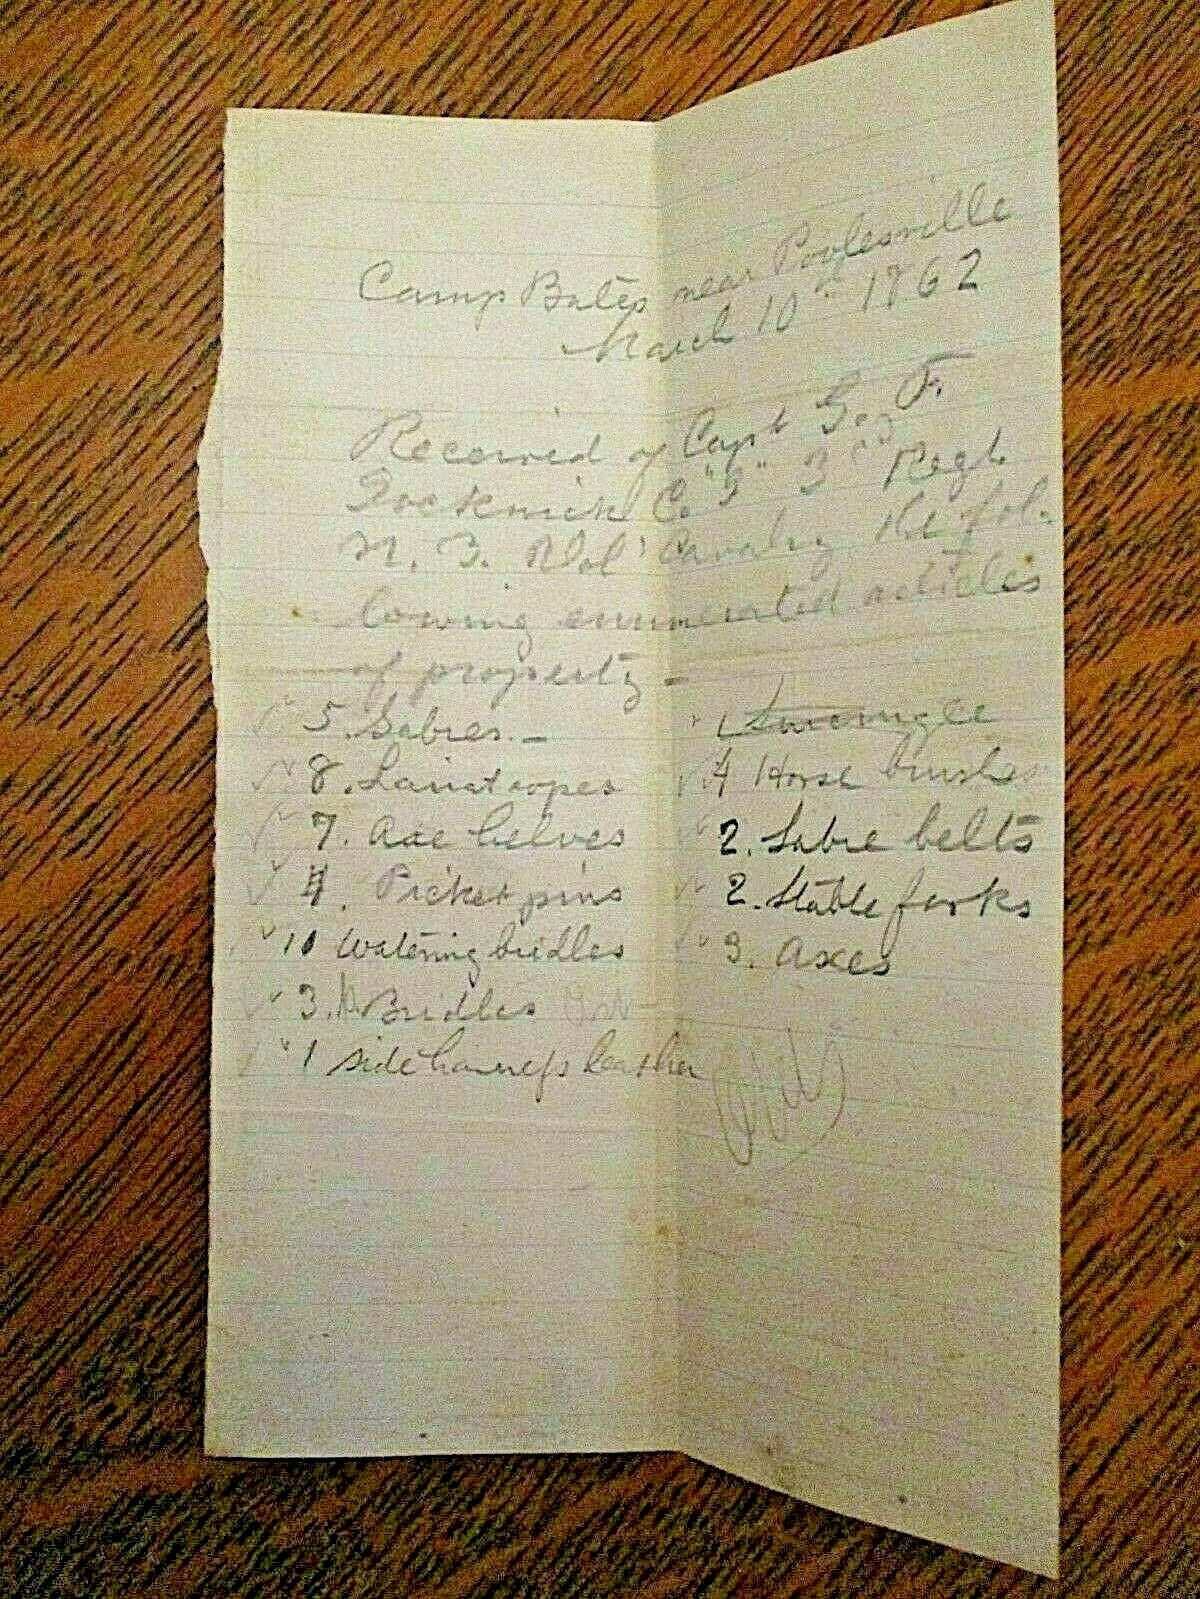 Camp Bates near Poolesville
March 10th 1862
Received of Capt Geo F.
Co "I" 3rd Regt
N. Y. Vol' Cavalry the fol-
lowing enumerated articles
of property –
5. Sabres. –
8. Lariat ropes
7. Axe helves
4. Picket pins
10 Watering bridles
3. Bridles
1 side harness leather
1 Surcingle
4 Horse brushes
2. Sabre belts
2. Stable forks
3. axes